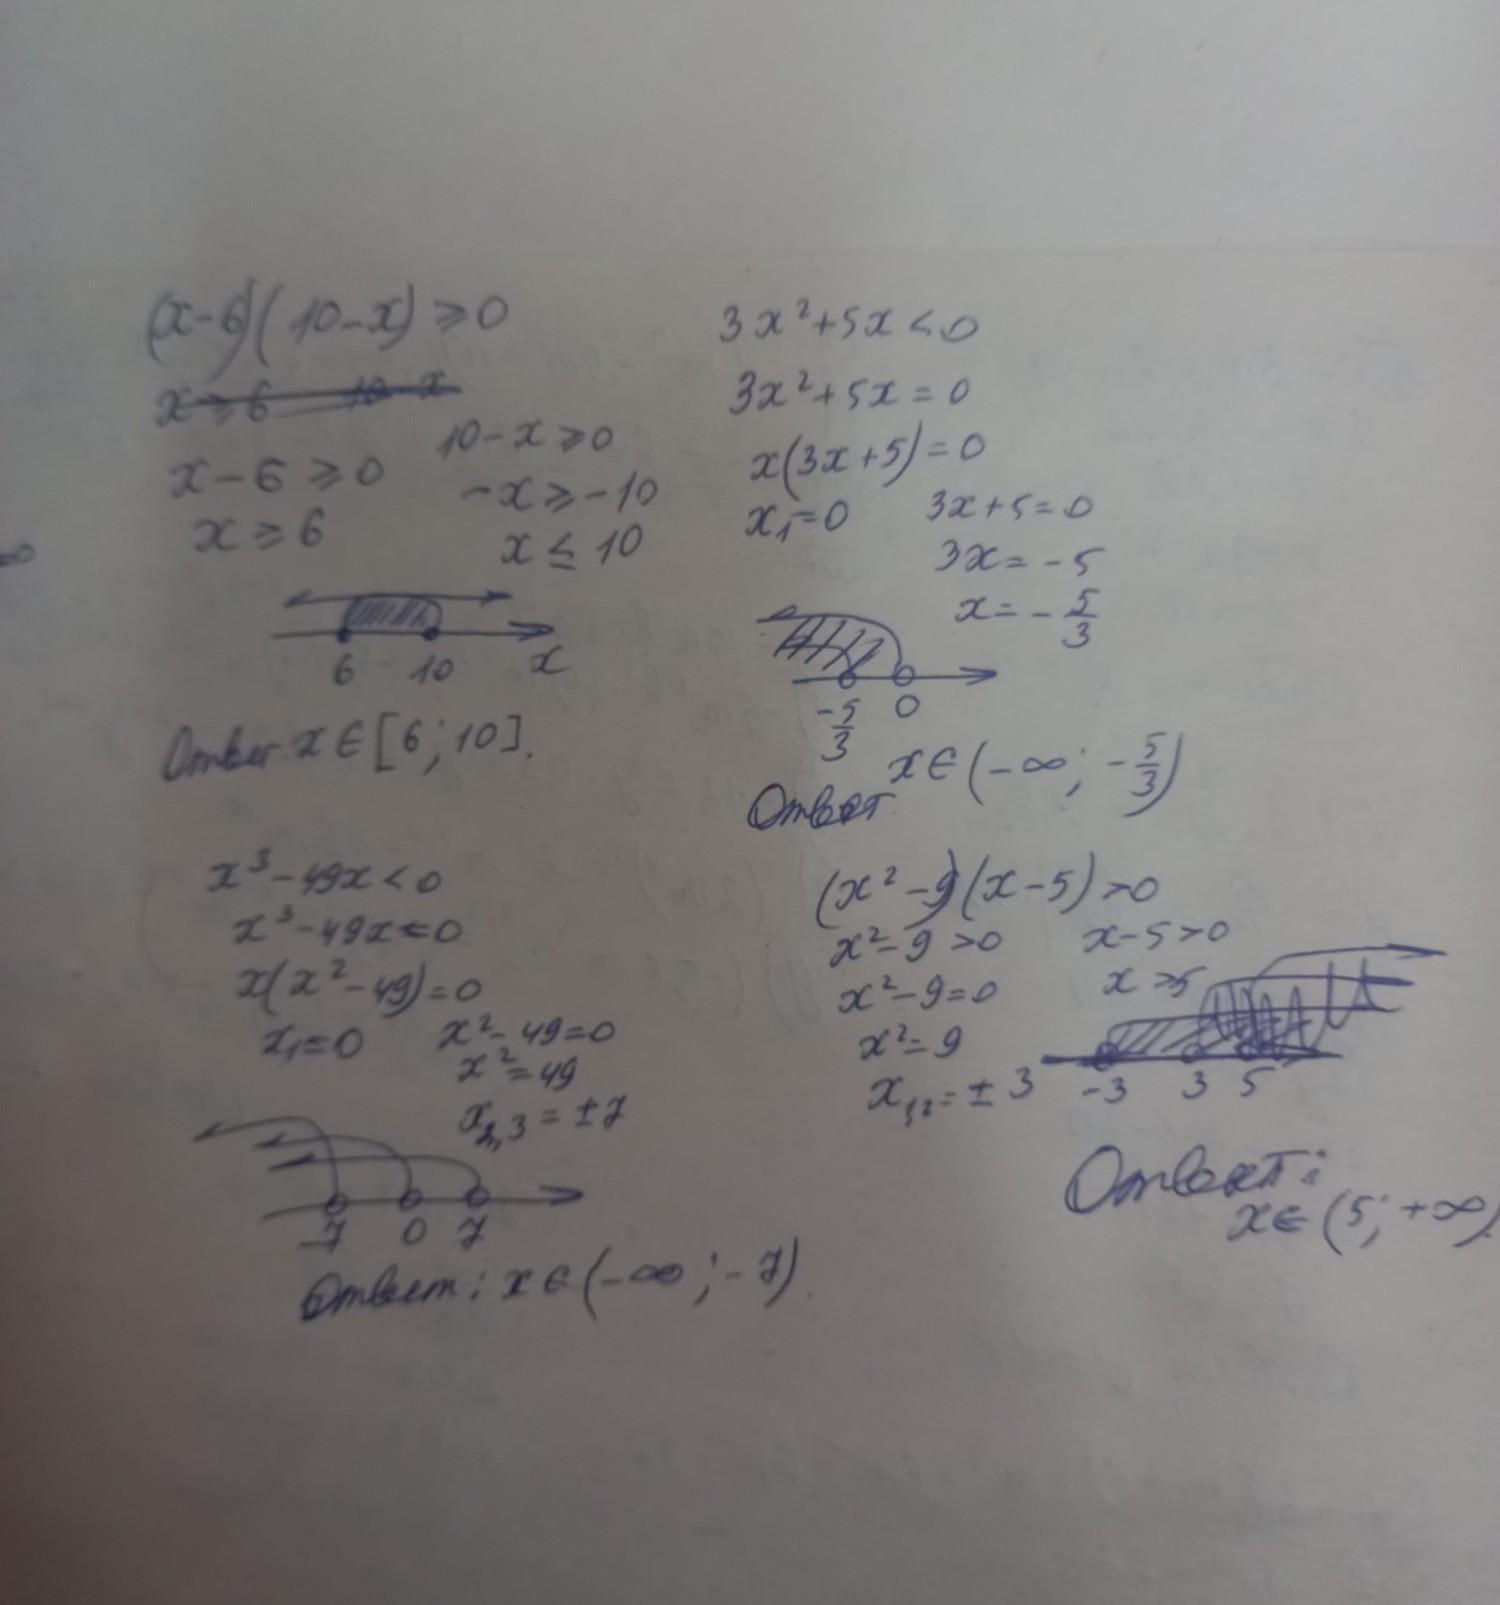 (x-6)(10-x) ≥ 0
x ≥ 6 10 x
x - 6 ≥ 0
x ≥ 6
10 - x ≥ 0
-x ≥ -10
x ≤ 10
6 10 x
Ответ x ∈ [6; 10].
3x² + 5x < 0
3x² + 5x = 0
x(3x + 5) = 0
x₁ = 0
3x + 5 = 0
3x = -5
x = -5/3
-5/3 0
Ответ x ∈ (-∞; -5/3)
x³ - 49x < 0
x³ - 49x = 0
x(x² - 49) = 0
x₁ = 0
x² - 49 = 0
x² = 49
x₂,₃ = ±7
-7 0 7
Ответ: x ∈ (-∞; -7).
(x² - 9)(x - 5) > 0
x² - 9 > 0
x² - 9 = 0
x² = 9
x₁,₂ = ± 3
x - 5 > 0
x > 5
-3 3 5
Ответ:
x ∈ (5; +∞).